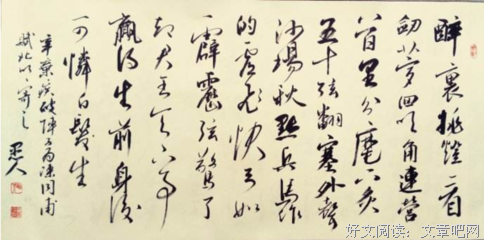 醉裏挑燈看
劍夢回吹角連營
八百里分麾下炙
五十弦翻塞外聲
沙場秋點兵馬作
的盧飛快弓如
霹靂弦驚了
卻君王天下事
贏得生前身後
可憐白髮生
辛棄疾破陣子為陳同甫
賦壯詞以寄之
好文阅读：文章吧网